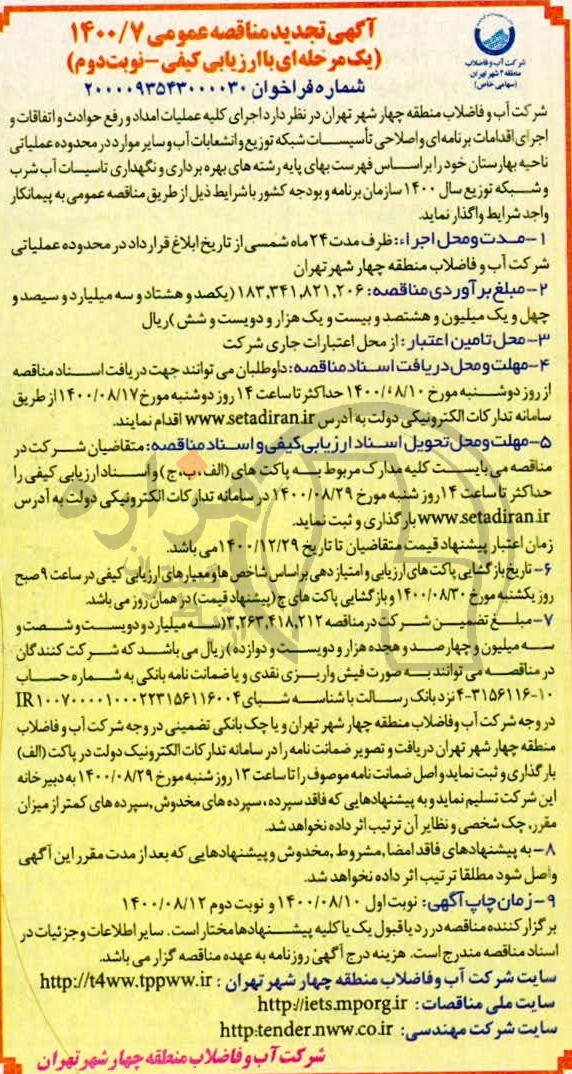 آگهی تجدید مناقصه عمومی ۱۴۰۰/۷
(یک مرحله ای با ارزیابی کیفی - نوبت دوم)
شماره فراخوان ۲۰۰۰۰۹۳۵۴۳۰۰۰۰۳۰
شرکت آب و فاضلاب
منطقه ۴ شهر تهران
(سهامی خاص)
شرکت آب و فاضلاب منطقه چهار شهر تهران در نظر دارد اجرای کلیه عملیات امداد و رفع حوادث و اتفاقات و
اجرای اقدامات برنامه ای و اصلاحی تأسیسات شبکه توزیع و انشعابات آب و سایر موارد در محدوده عملیاتی
ناحیه بهارستان خود را براساس فهرست بهای پایه رشته های بهره برداری و نگهداری تاسیسات آب شرب
و شبکه توزیع سال ۱۴۰۰ سازمان برنامه و بودجه کشور با شرایط ذیل از طریق مناقصه عمومی به پیمانکار
واجد شرایط واگذار نماید.
۱-مدت و محل اجراء: ظرف مدت ۲۴ ماه شمسی از تاریخ ابلاغ قرارداد در محدوده عملیاتی
شرکت آب و فاضلاب منطقه چهار شهر تهران
۲-مبلغ برآوردی مناقصه: ۱۸۳,۳۴۱,۸۲۱,۲۰۶ (یکصد و هشتاد و سه میلیارد و سیصد و
چهل و یک میلیون و هشتصد و بیست و یک هزار و دویست و شش )ریال
۳-محل تامین اعتبار: از محل اعتبارات جاری شرکت
۴-مهلت و محل دریافت اسناد مناقصه: داوطلبان می توانند جهت دریافت اسناد مناقصه
از روز دوشنبه مورخ ۱۴۰۰/۰۸/۱۰ حداکثر تا ساعت ۱۴ روز دوشنبه مورخ ۱۴۰۰/۰۸/۱۷ از طریق
سامانه تدارکات الکترونیکی دولت به آدرس www.setadiran.ir اقدام نمایند.
۵-مهلت و محل تحویل اسناد ارزیابی کیفی و اسناد مناقصه: متقاضیان شرکت در
مناقصه می بایست کلیه مدارک مربوط به پاکت های (الف،ب،ج) و اسناد ارزیابی کیفی را
حداکثر تا ساعت ۱۴ روز شنبه مورخ ۱۴۰۰/۰۸/۲۹ در سامانه تدارکات الکترونیکی دولت به آدرس
www.setadiran.ir بارگذاری و ثبت نماید.
زمان اعتبار پیشنهاد قیمت متقاضیان تا تاریخ ۱۴۰۰/۱۲/۲۹ می باشد.
۶- تاریخ بازگشایی پاکت های ارزیابی و امتیازدهی براساس شاخص ها و معیارهای ارزیابی کیفی در ساعت ۹ صبح
روز یکشنبه مورخ ۱۴۰۰/۰۸/۳۰ و بازگشایی پاکت های ج (پیشنهاد قیمت) در همان روز می باشد.
۷-مبلغ تضمین شرکت در مناقصه ۳,۲۶۳,۴۱۸,۲۱۲(سه میلیارد و دویست و شصت و
سه میلیون و چهارصد و هجده هزار و دویست و دوازده) ریال می باشد که شرکت کنندگان
در مناقصه می توانند به صورت فیش واریزی نقدی و یا ضمانت نامه بانکی به شماره حساب
۴-۳۱۵۶۱۱۶-۱۰ نزد بانک رسالت با شناسه شبای IR ۱۰۰۷۰۰۰۰۱۰۰۰۲۲۳۱۵۶۱۱۶۰۰۴
در وجه شرکت آب و فاضلاب منطقه چهار شهر تهران و یا چک بانکی تضمینی در وجه شرکت آب و فاضلاب
منطقه چهار شهر تهران دریافت و تصویر ضمانت نامه را در سامانه تدارکات الکترونیک دولت در پاکت (الف)
بارگذاری و ثبت نماید و اصل ضمانت نامه موصوف را تا ساعت ۱۳ روز شنبه مورخ ۱۴۰۰/۰۸/۲۹ به دبیرخانه
این شرکت تسلیم نماید و به پیشنهادهایی که فاقد سپرده، سپرده های مخدوش ,سپرده های کمتر از میزان
مقرر, چک شخصی و نظایر آن ترتیب اثر داده نخواهد شد.
۸- به پیشنهادهای فاقد امضا,مشروط ,مخدوش و پیشنهادهایی که بعد از مدت مقرر این آگهی
واصل شود مطلقا ترتیب اثر داده نخواهد شد.
۹-زمان چاپ آگهی: نوبت اول ۱۴۰۰/۰۸/۱۰ و نوبت دوم ۱۴۰۰/۰۸/۱۲
برگزار کننده مناقصه در رد یا قبول یک یا کلیه پیشنهادها مختار است. سایر اطلاعات و جزئیات در
اسناد مناقصه مندرج است. هزینه درج آگهی روزنامه به عهده مناقصه گزار می باشد.
سایت شرکت آب و فاضلاب منطقه چهار شهر تهران : http://t4ww.tppww.ir
سایت ملی مناقصات: http://iets.mporg.ir
سایت شرکت مهندسی: http:tender.nww.co.ir
شرکت آب و فاضلاب منطقه چهار شهر تهران